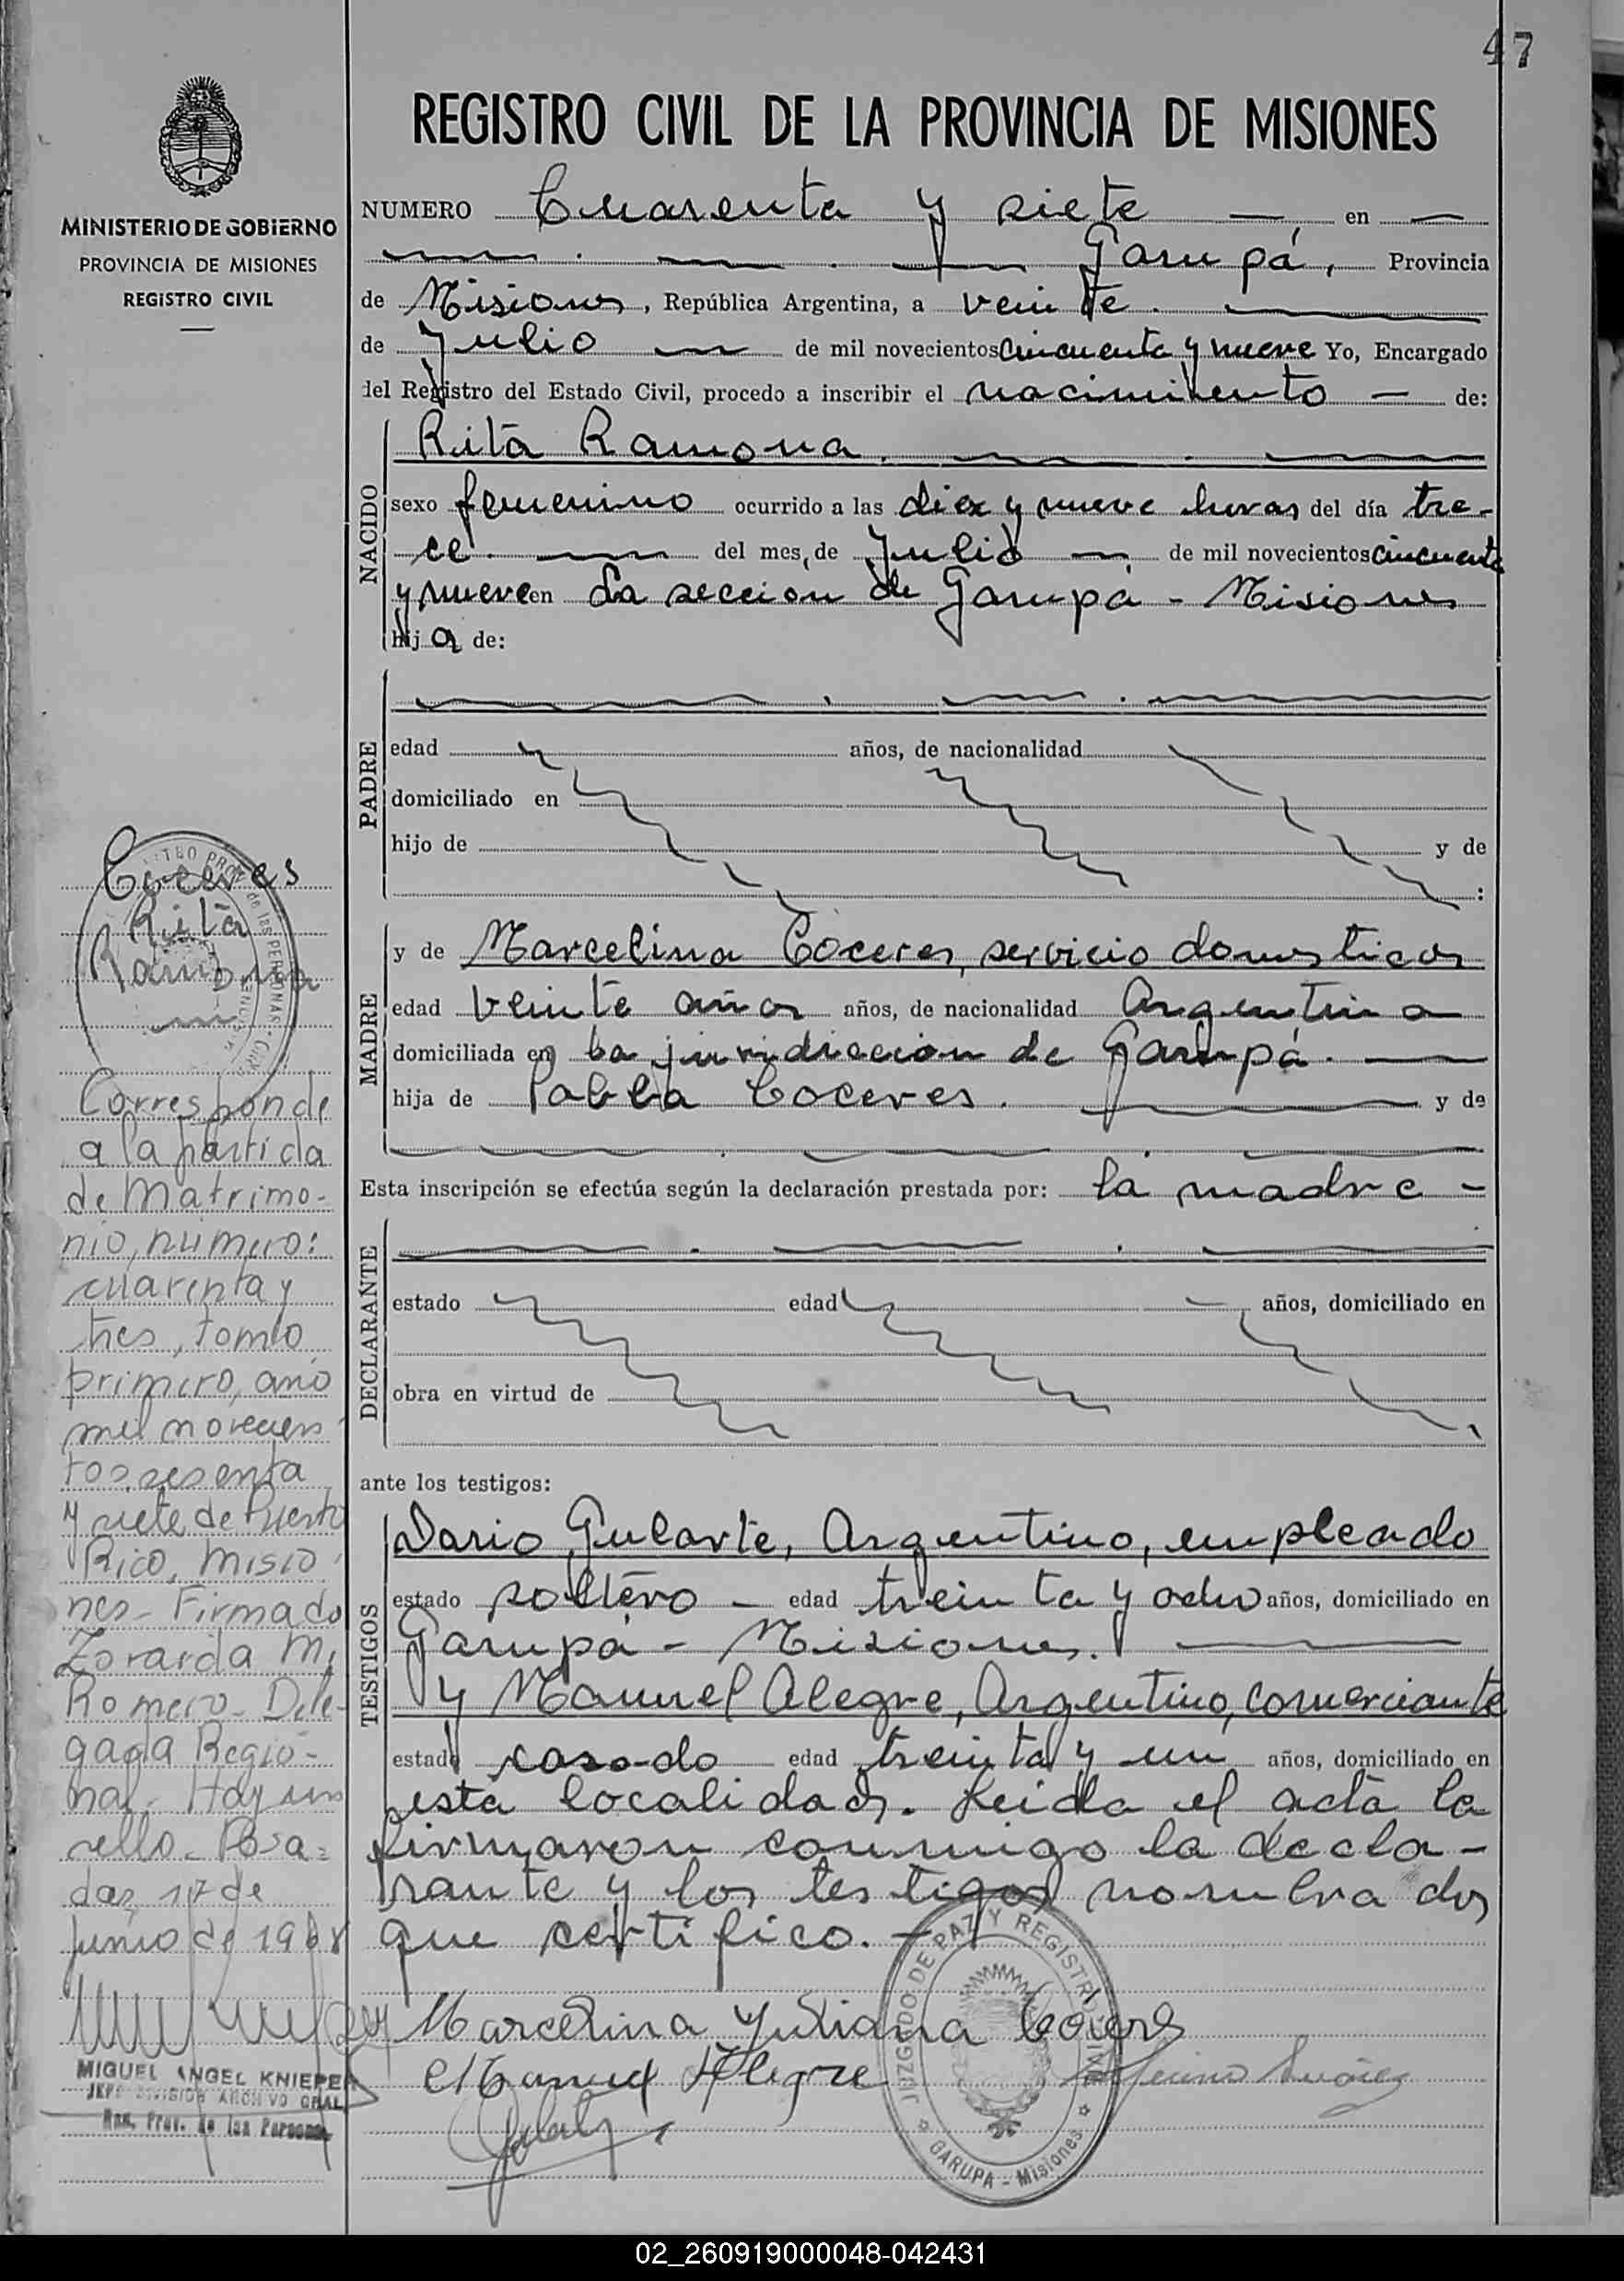 47
REGISTRO CIVIL DE LA PROVINCIA DE MISIONES
MINISTERIO DE GOBIERNO
PROVINCIA DE MISIONES
REGISTRO CIVIL
NUMERO Cuarenta y siete — en —
Garupá, Provincia
de Misiones, República Argentina, a veinte.
de Julio — de mil novecientos cincuenta y nueve Yo, Encargado
del Registro del Estado Civil, procedo a inscribir el nacimiento — de:
NACIDO
Rita Ramona.
sexo femenino ocurrido a las diez y nueve horas del día tre-
ce. — del mes, de Julio — de mil novecientos cincuenta
y nueve en La sección de Garupá - Misiones
hija de:
PADRE
edad años, de nacionalidad
domiciliado en
hijo de y de
:
MADRE
y de Marcelina Coceres, servicio domesticos
edad veinte años años, de nacionalidad Argentina
domiciliada en la juridiccion de Garupá.
hija de Pabla Coceres. y de
Esta inscripción se efectúa según la declaración prestada por: la madre -
DECLARANTE
estado edad años, domiciliado en
obra en virtud de
ante los testigos:
TESTIGOS
Dario Gularte, Argentino, empleado
estado soltero — edad treinta y ocho años, domiciliado en
Garupá - Misiones.
y Manuel Alegre, Argentino, comerciante
estado casado edad treinta y un años, domiciliado en
esta localidad. Leida el acta la
firmaron conmigo la decla-
rante y los testigos nombrados
que certifico. -
Marcelina Juliana Coceres
Manuel Alegre
JUZGADO DE PAZ Y REGISTRO CIVIL
GARUPA - Misiones
Coceres
Rita
Ramona
Corresponde
a la partida
de Matrimo-
nio, número:
cuarenta y
tres, tomo
primero, año
mil novecien
tos sesenta
y siete de Puerto
Rico, Misio
nes - Firmado
Zoraida M.
Romero - Dele-
gada Regio-
nal - Hay un
sello - Posa-
das, 17 de
Junio de 1968
MIGUEL ANGEL KNIEPER
JEFE DIVISION ARCHIVO GRAL.
Reg. Prov. de las Personas
02_260919000048-042431